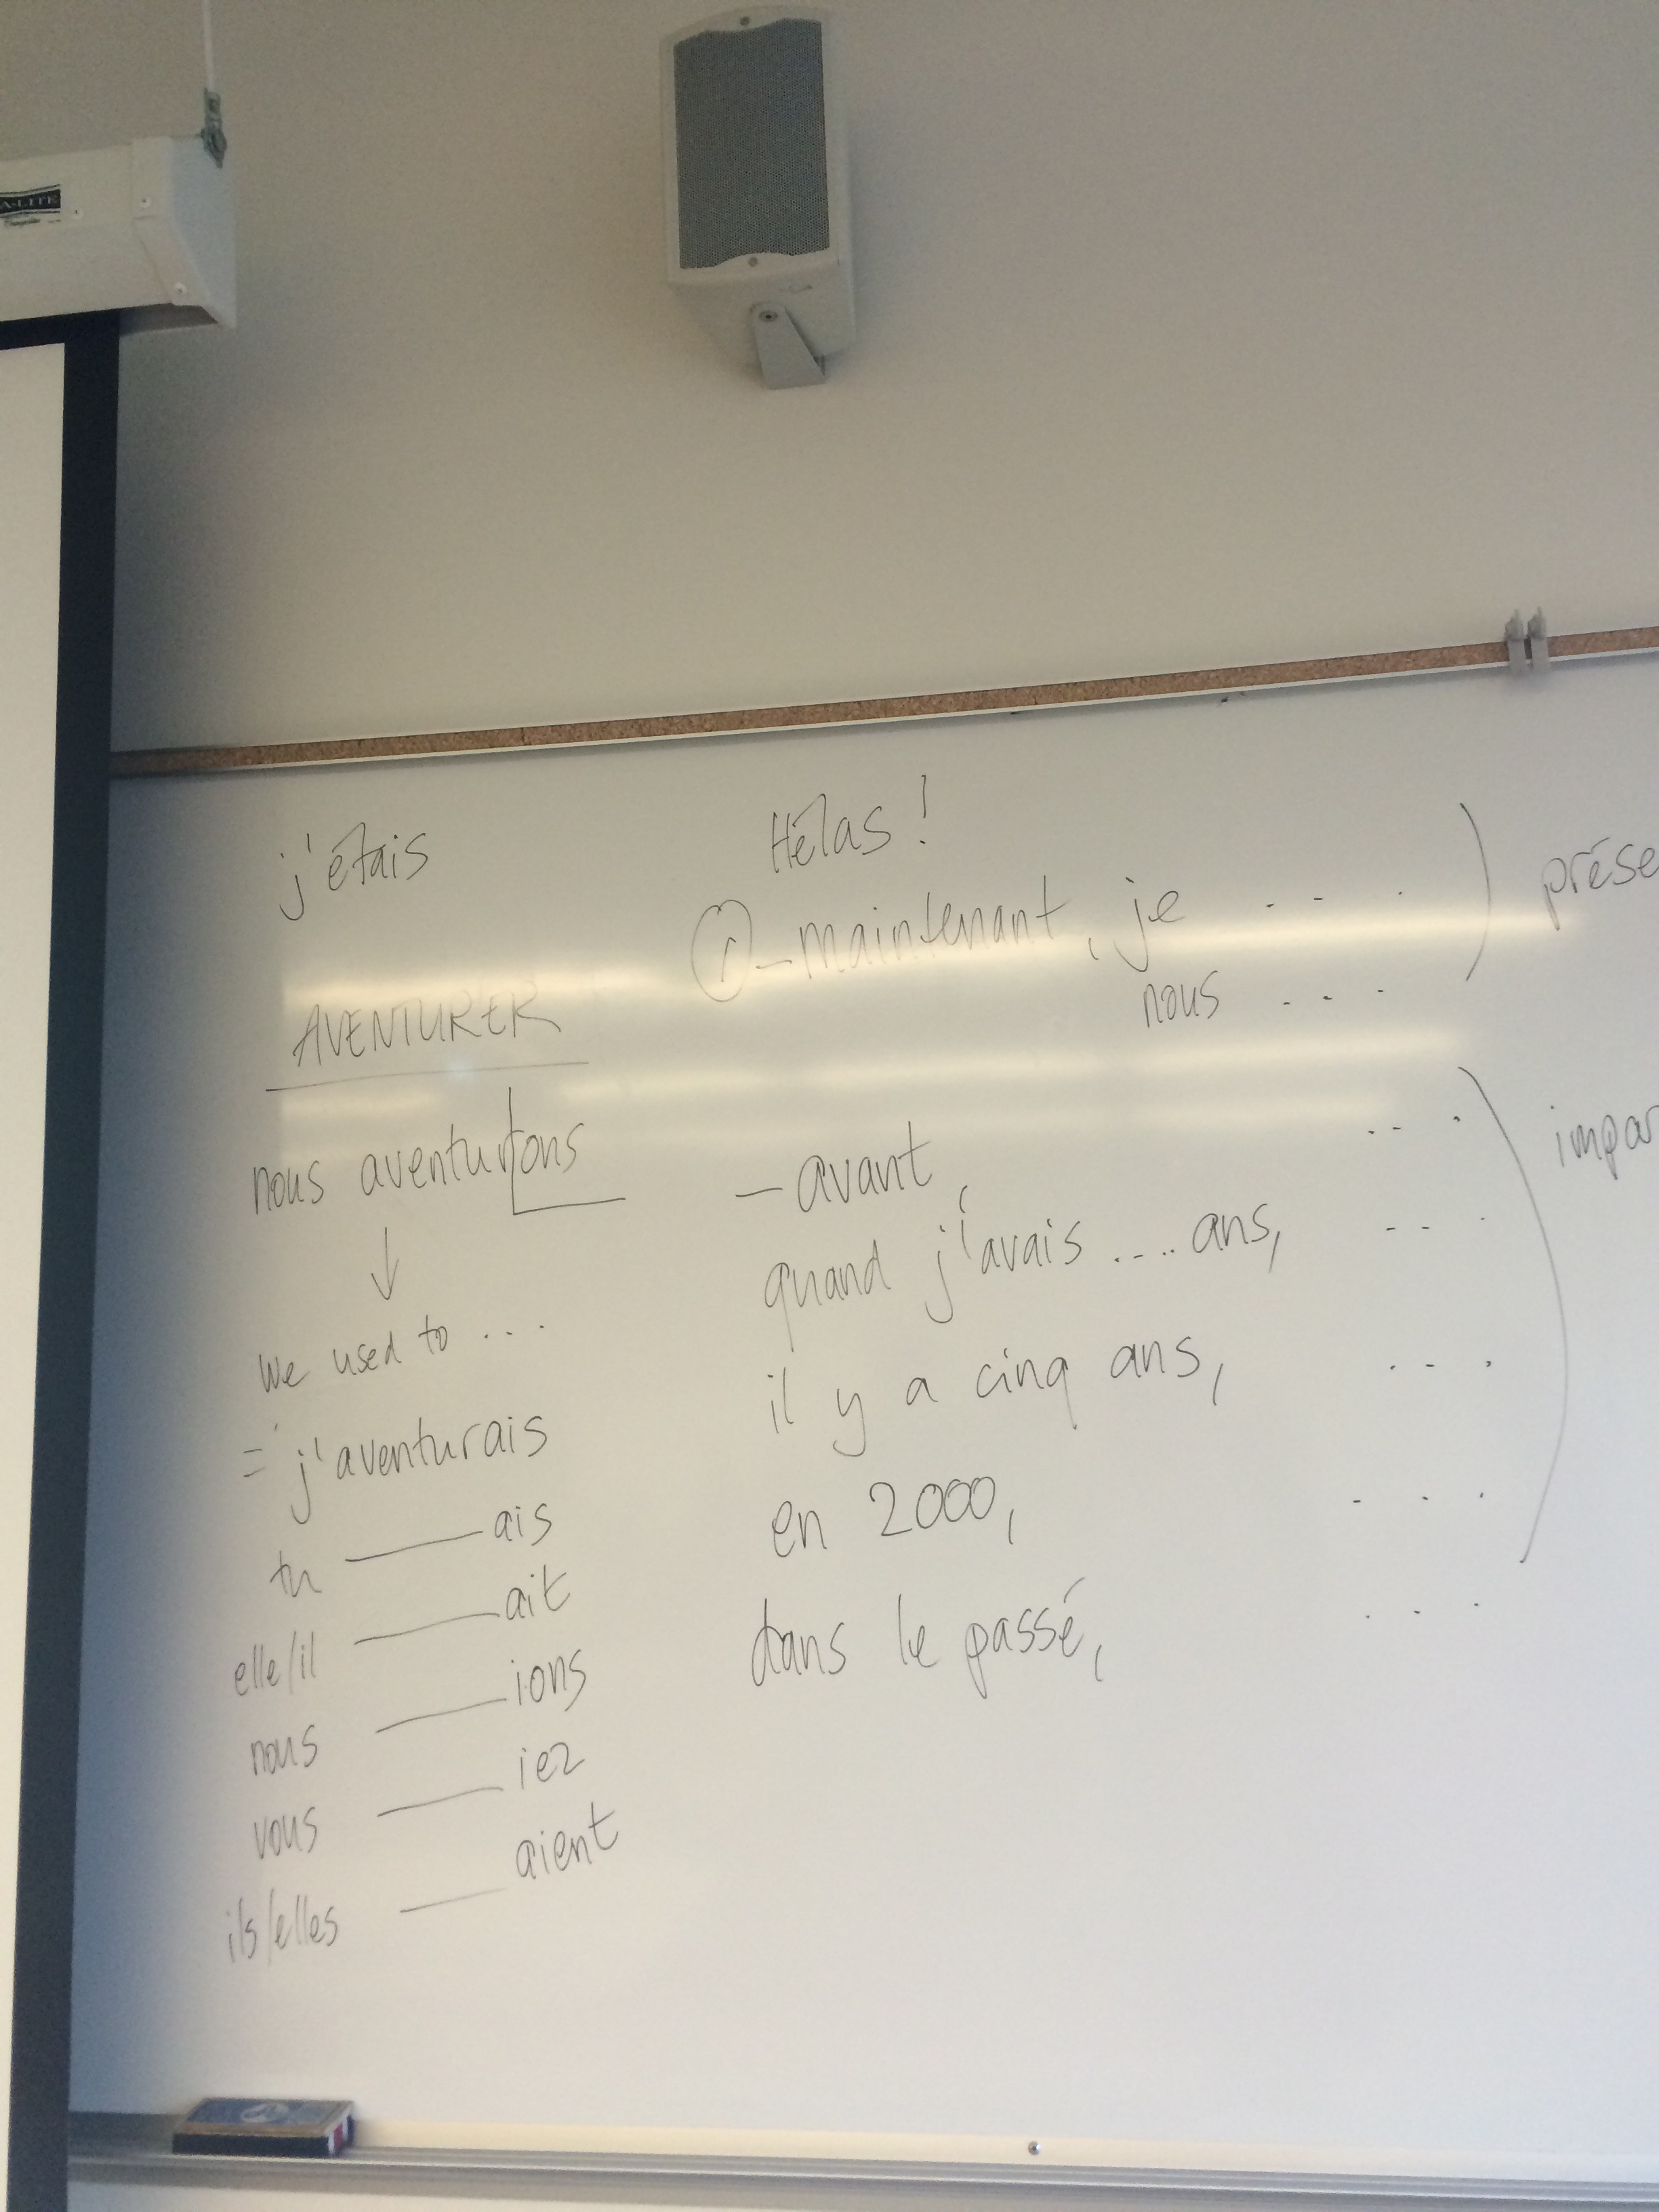 A-LITE
j'étais
AVENTURER
nous aventurons
↓
We used to ...
= j'aventurais
tu ____ ais
elle/il ____ ait
nous ____ ions
vous ____ iez
ils/elles ____ aient
Hélas !
① - maintenant, je ... ) prése
nous ...
- avant, ... ) impar
quand j'avais .... ans, ...
il y a cinq ans, ...
en 2000, ...
dans le passé, ...